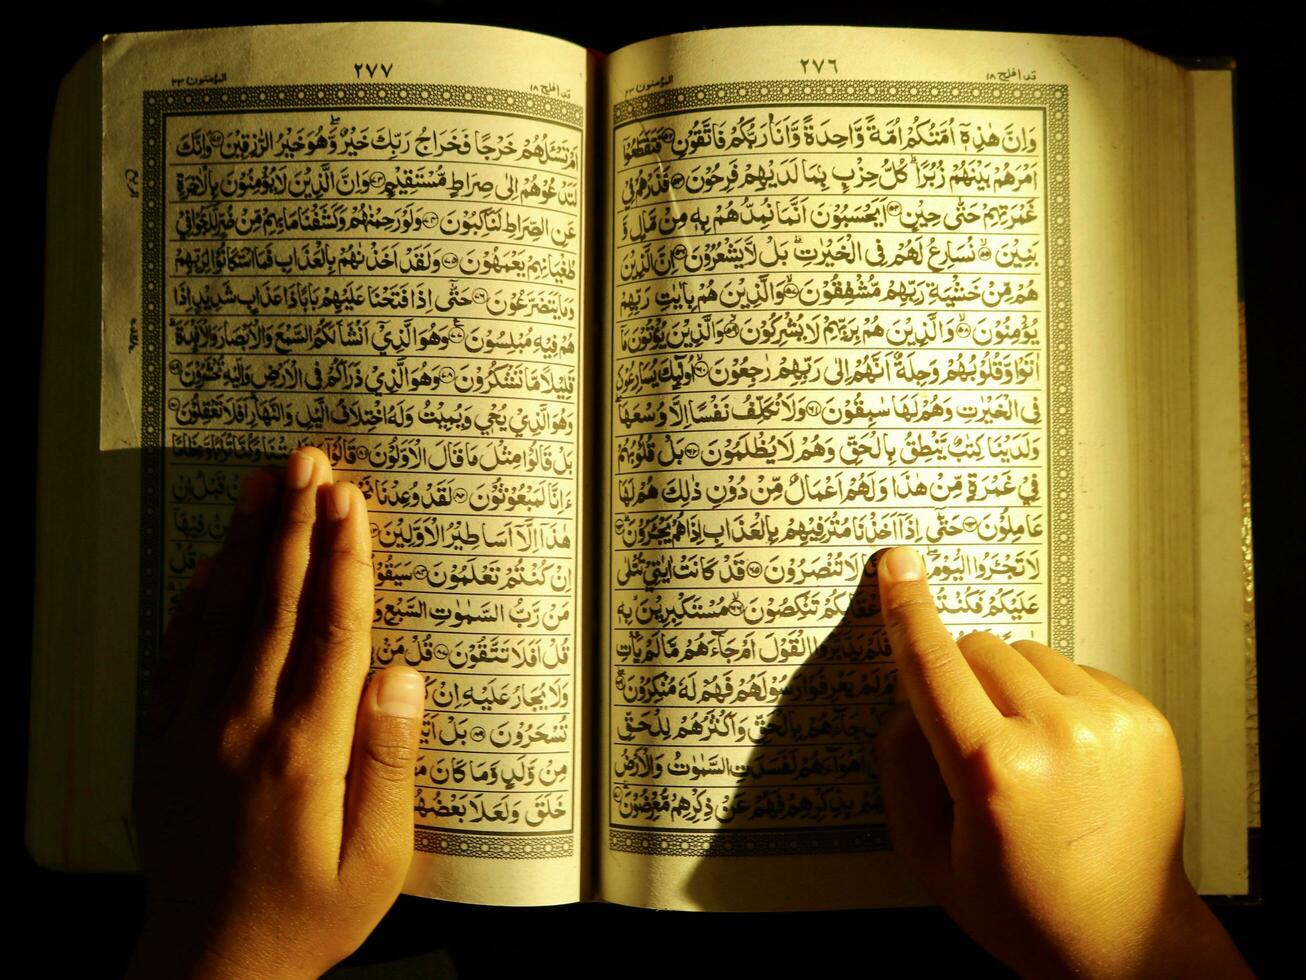 قد افلح ١٨ ٢٧٦ المؤمنون ٢٣
وَاِنَّ هٰذِهٖۤ اُمَّتُكُمْ اُمَّةً وَّاحِدَةً وَّاَنَا رَبُّكُمْ فَاتَّقُوْنِ ۝٥٢ فَتَقَطَّعُوْۤا
اَمْرَهُمْ بَيْنَهُمْ زُبُرًا ؕ كُلُّ حِزْبٍۭ بِمَا لَدَيْهِمْ فَرِحُوْنَ ۝٥٣ فَذَرْهُمْ فِيْ
غَمْرَتِهِمْ حَتّٰى حِيْنٍ ۝٥٤ اَيَحْسَبُوْنَ اَنَّمَا نُمِدُّهُمْ بِهٖ مِنْ مَّالٍ وَّ
بَنِيْنَ ۝٥٥ نُسَارِعُ لَهُمْ فِي الْخَيْرٰتِ ؕ بَلْ لَّا يَشْعُرُوْنَ ۝٥٦ اِنَّ الَّذِيْنَ
هُمْ مِّنْ خَشْيَةِ رَبِّهِمْ مُّشْفِقُوْنَ ۝٥٧ وَالَّذِيْنَ هُمْ بِاٰيٰتِ رَبِّهِمْ
يُؤْمِنُوْنَ ۝٥٨ وَالَّذِيْنَ هُمْ بِرَبِّهِمْ لَا يُشْرِكُوْنَ ۝٥٩ وَالَّذِيْنَ يُؤْتُوْنَ مَاۤ
اٰتَوْا وَّقُلُوْبُهُمْ وَجِلَةٌ اَنَّهُمْ اِلٰى رَبِّهِمْ رٰجِعُوْنَ ۝٦٠ اُولٰٓئِكَ يُسَارِعُوْنَ
فِي الْخَيْرٰتِ وَهُمْ لَهَا سٰبِقُوْنَ ۝٦١ وَلَا نُكَلِّفُ نَفْسًا اِلَّا وُسْعَهَا
وَلَدَيْنَا كِتٰبٌ يَّنْطِقُ بِالْحَقِّ وَهُمْ لَا يُظْلَمُوْنَ ۝٦٢ بَلْ قُلُوْبُهُمْ
فِيْ غَمْرَةٍ مِّنْ هٰذَا وَلَهُمْ اَعْمَالٌ مِّنْ دُوْنِ ذٰلِكَ هُمْ لَهَا
عٰمِلُوْنَ ۝٦٣ حَتّٰۤى اِذَاۤ اَخَذْنَا مُتْرَفِيْهِمْ بِالْعَذَابِ اِذَا هُمْ يَجْـَٔرُوْنَ ۝٦٤
لَا تَجْـَٔرُوا الْيَوْمَ لَا تُنْصَرُوْنَ ۝٦٥ قَدْ كَانَتْ اٰيٰتِيْ تُتْلٰى
عَلَيْكُمْ فَكُنْتُمْ اَعْقَابِكُمْ تَنْكِصُوْنَ ۝٦٦ مُسْتَكْبِرِيْنَ بِهٖ
اَفَلَمْ يَدَّبَّرُوا الْقَوْلَ اَمْ جَآءَهُمْ مَّا لَمْ يَاْتِ
اَمْ لَمْ يَعْرِفُوْا رَسُوْلَهُمْ فَهُمْ لَهٗ مُنْكِرُوْنَ ۝٦٩
بَلْ جَآءَهُمْ بِالْحَقِّ وَاَكْثَرُهُمْ لِلْحَقِّ
اَهْوَآءَهُمْ لَفَسَدَتِ السَّمٰوٰتُ وَالْاَرْضُ
بِذِكْرِهِمْ فَهُمْ عَنْ ذِكْرِهِمْ مُّعْرِضُوْنَ ۝٧١
قد افلح ١٨ ٢٧٧ المؤمنون ٢٣
اَمْ تَسْـَٔلُهُمْ خَرْجًا فَخَرَاجُ رَبِّكَ خَيْرٌ ۖ وَّهُوَ خَيْرُ الرّٰزِقِيْنَ ۝٧٢ وَاِنَّكَ
لَتَدْعُوْهُمْ اِلٰى صِرَاطٍ مُّسْتَقِيْمٍ ۝٧٣ وَاِنَّ الَّذِيْنَ لَا يُؤْمِنُوْنَ بِالْاٰخِرَةِ
عَنِ الصِّرَاطِ لَنٰكِبُوْنَ ۝٧٤ وَلَوْ رَحِمْنٰهُمْ وَكَشَفْنَا مَا بِهِمْ مِّنْ ضُرٍّ لَّلَجُّوْا فِيْ
طُغْيَانِهِمْ يَعْمَهُوْنَ ۝٧٥ وَلَقَدْ اَخَذْنٰهُمْ بِالْعَذَابِ فَمَا اسْتَكَانُوْا لِرَبِّهِمْ
وَمَا يَتَضَرَّعُوْنَ ۝٧٦ حَتّٰۤى اِذَا فَتَحْنَا عَلَيْهِمْ بَابًا ذَا عَذَابٍ شَدِيْدٍ اِذَا
هُمْ فِيْهِ مُبْلِسُوْنَ ۝٧٧ وَهُوَ الَّذِيْۤ اَنْشَاَ لَكُمُ السَّمْعَ وَالْاَبْصَارَ وَالْاَفْـِٕدَةَ
قَلِيْلًا مَّا تَشْكُرُوْنَ ۝٧٨ وَهُوَ الَّذِيْ ذَرَاَكُمْ فِي الْاَرْضِ وَاِلَيْهِ تُحْشَرُوْنَ ۝٧٩
وَهُوَ الَّذِيْ يُحْيٖ وَيُمِيْتُ وَلَهُ اخْتِلَافُ الَّيْلِ وَالنَّهَارِ ؕ اَفَلَا تَعْقِلُوْنَ ۝٨٠
بَلْ قَالُوْا مِثْلَ مَا قَالَ الْاَوَّلُوْنَ ۝٨١ قَالُوْۤا مِتْنَا وَكُنَّا تُرَابًا وَّعِظَامًا
ءَاِنَّا لَمَبْعُوْثُوْنَ ۝٨٢ لَقَدْ وُعِدْنَا قَبْلُ اِنْ
هٰذَاۤ اِلَّاۤ اَسَاطِيْرُ الْاَوَّلِيْنَ ۝٨٣ فِيْهَاۤ
اِنْ كُنْتُمْ تَعْلَمُوْنَ ۝٨٤ سَيَقُوْ قُلْ
مَنْ رَّبُّ السَّمٰوٰتِ السَّبْعِ
قُلْ اَفَلَا تَتَّقُوْنَ ۝٨٧ قُلْ مَنْۢ
وَلَا يُجَارُ عَلَيْهِ اِنْ
تُسْحَرُوْنَ ۝٨٩ بَلْ
مِنْ وَّلَدٍ وَّمَا كَانَ
خَلَقَ وَلَعَلَا بَعْضُهُمْ